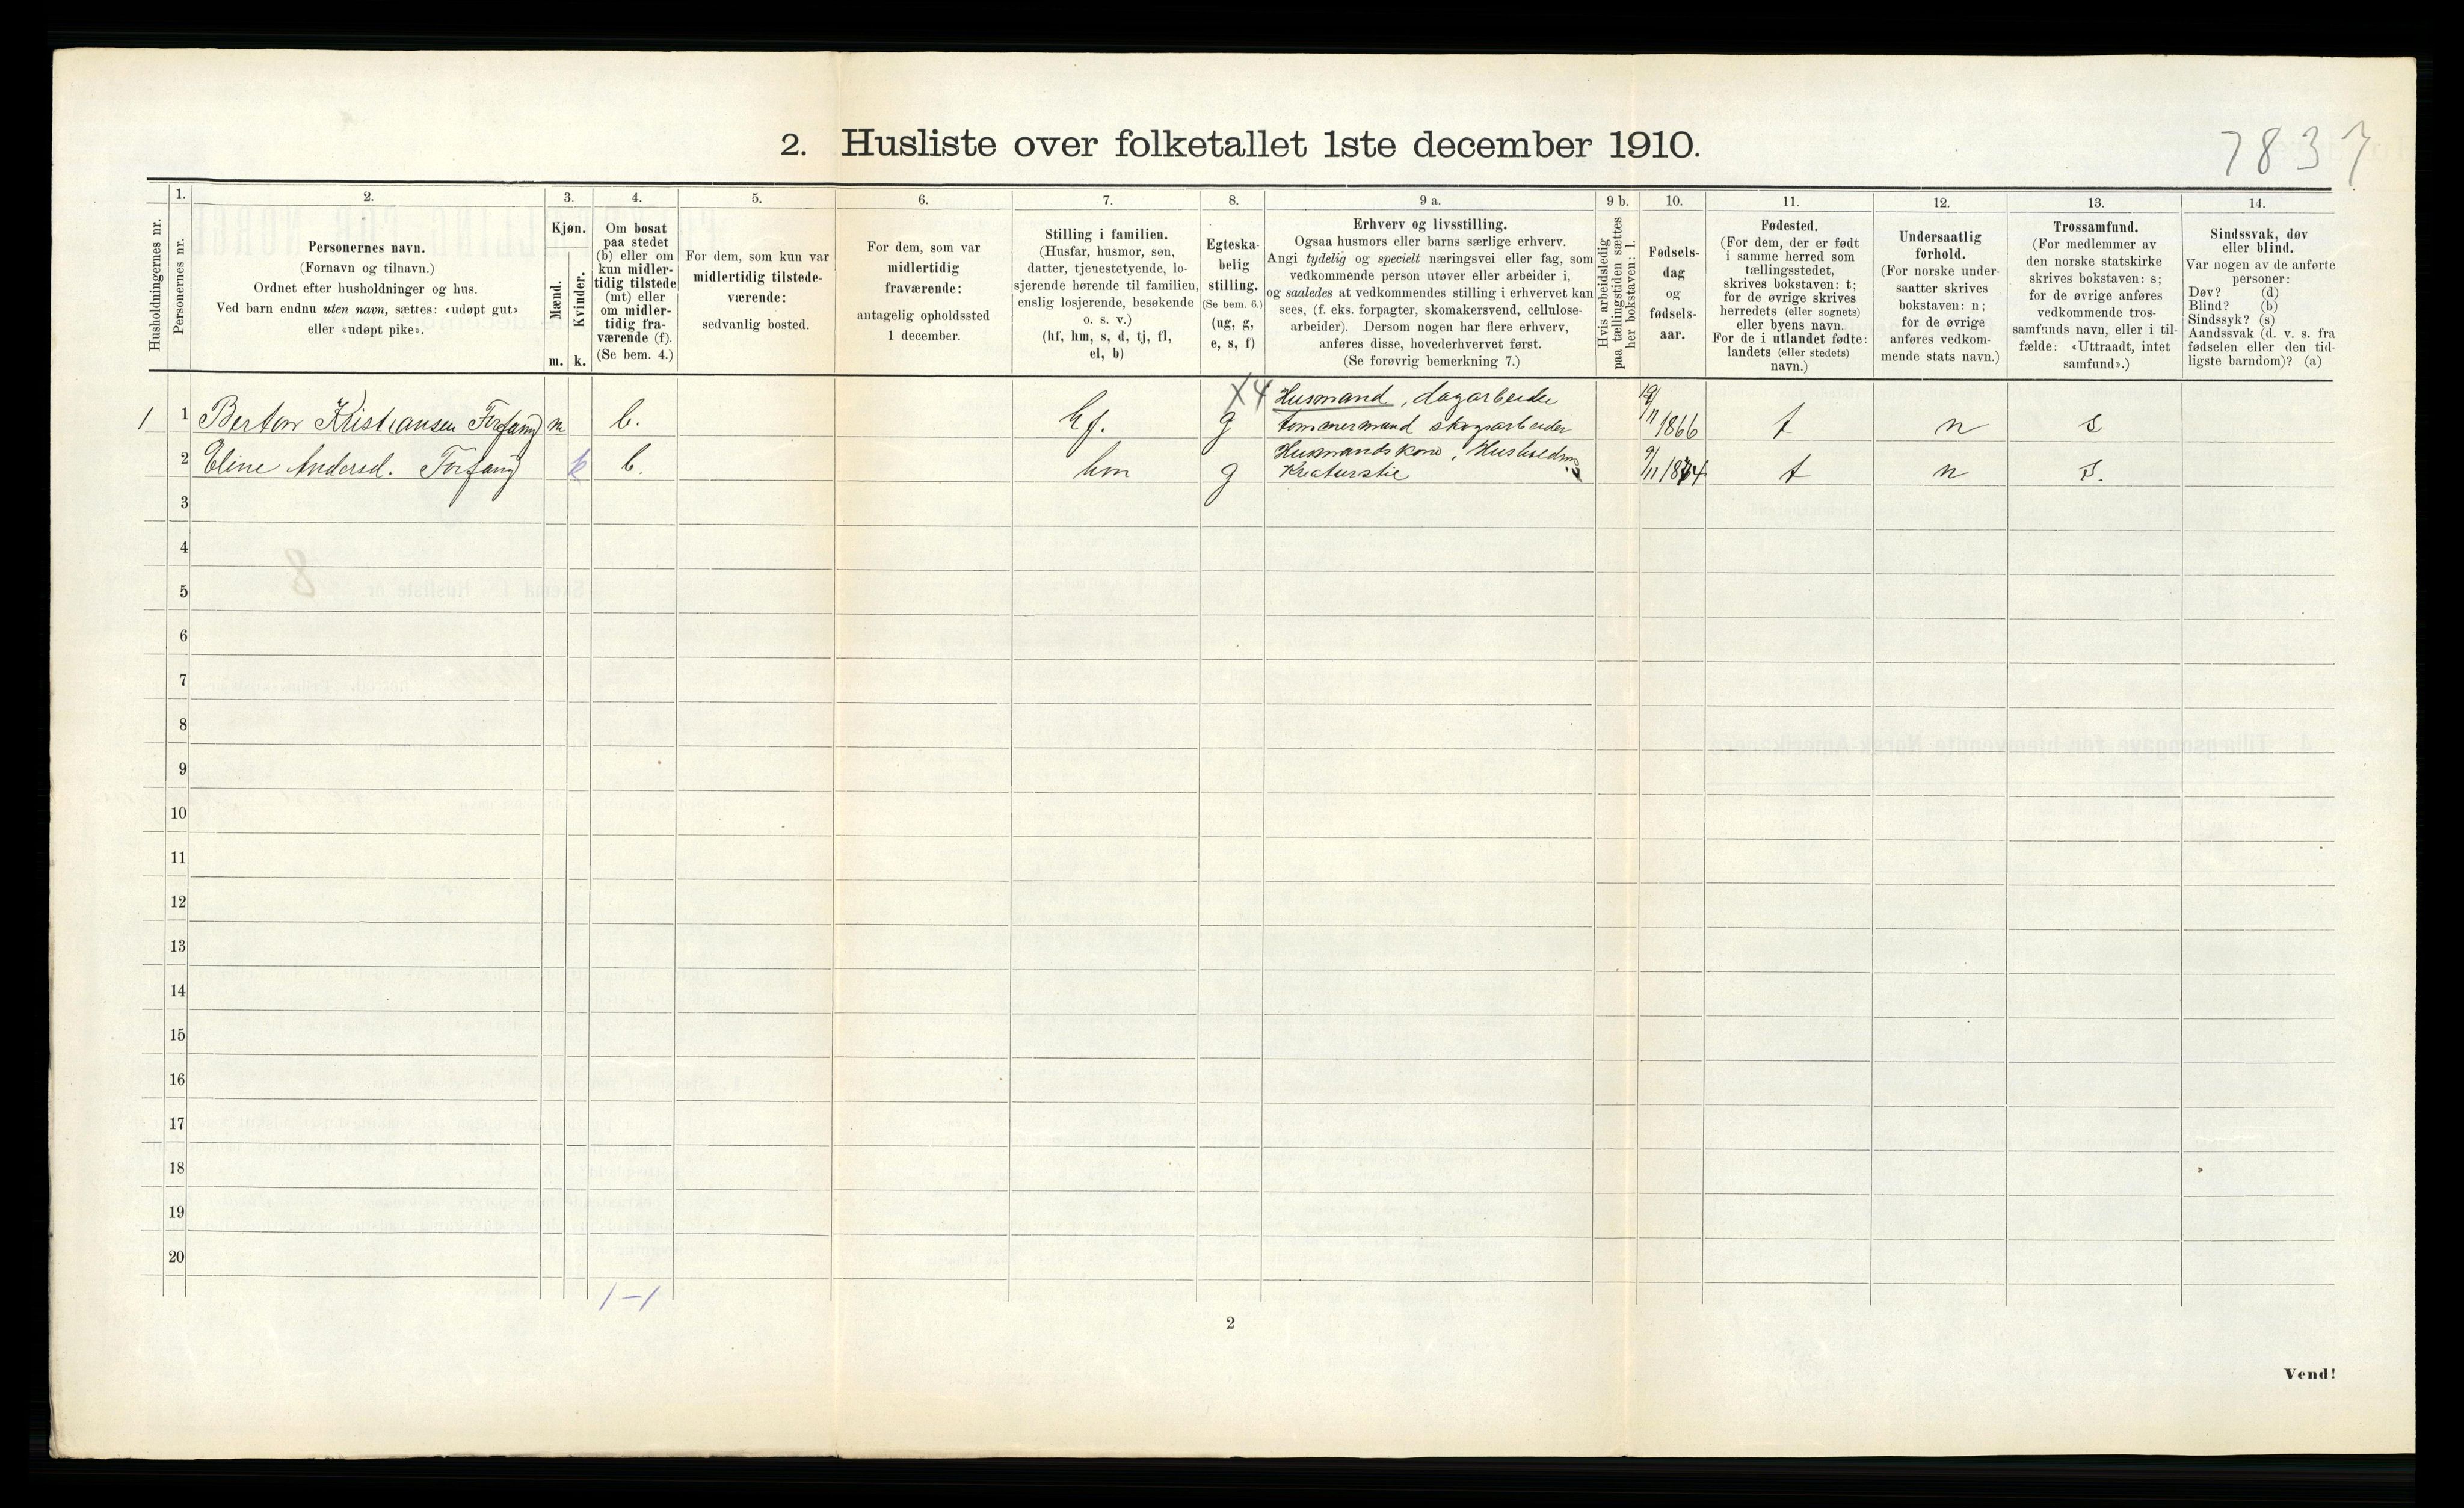 7837
2. Husliste over folketallet 1ste december 1910.
Husholdningernes nr.
1.
Personernes nr.
2.
Personernes navn.
(Fornavn og tilnavn.)
Ordnet efter husholdninger og hus.
Ved barn endnu uten navn, sættes: «udøpt gut»
eller «udøpt pike».
3.
Kjøn.
Mænd.
Kvinder.
m. k.
4.
Om bosat
paa stedet
(b) eller om
kun midler-
tidig tilstede
(mt) eller
om midler-
tidig fra-
værende (f).
(Se bem. 4.)
5.
For dem, som kun var
midlertidig tilstede-
værende:
sedvanlig bosted.
6.
For dem, som var
midlertidig
fraværende:
antagelig opholdssted
1 december.
7.
Stilling i familien.
(Husfar, husmor, søn,
datter, tjenestetyende, lo-
sjerende hørende til familien,
enslig losjerende, besøkende
o. s. v.)
(hf, hm, s, d, tj, fl,
el, b)
8.
Egteska-
belig
stilling.
(Se bem. 6.)
(ug, g,
e, s, f)
9 a.
Erhverv og livsstilling.
Ogsaa husmors eller barns særlige erhverv.
Angi tydelig og specielt næringsvei eller fag, som
vedkommende person utøver eller arbeider i,
og saaledes at vedkommendes stilling i erhvervet kan
sees, (f. eks. forpagter, skomakersvend, cellulose-
arbeider). Dersom nogen har flere erhverv,
anføres disse, hovederhvervet først.
(Se forøvrig bemerkning 7.)
9 b.
Hvis arbeidsledig
paa tællingstiden sættes
her bokstaven: l.
10.
Fødsels-
dag
og
fødsels-
aar.
11.
Fødested.
(For dem, der er født
i samme herred som
tællingsstedet,
skrives bokstaven: t;
for de øvrige skrives
herredets (eller sognets)
eller byens navn.
For de i utlandet fødte:
landets (eller stedets)
navn.)
12.
Undersaatlig
forhold.
(For norske under-
saatter skrives
bokstaven: n;
for de øvrige
anføres vedkom-
mende stats navn.)
13.
Trossamfund.
(For medlemmer av
den norske statskirke
skrives bokstaven: s;
for de øvrige anføres
vedkommende tros-
samfunds navn, eller i til-
fælde: «Uttraadt, intet
samfund».)
14.
Sindssvak, døv
eller blind.
Var nogen av de anførte
personer:
Døv? (d)
Blind? (b)
Sindssyk? (s)
Aandssvak (d. v. s. fra
fødselen eller den tid-
ligste barndom)? (a)
X4 Husmand, dagarbeider
1 1 Berton Kristiansen Forfang m b. hf. g tømmermand skogsarbeider 1866 t n s
Husmandskone, Husholdning
2 Eline Andersd. Forfang k b. hm g Kreaturstel 9/11 1874 t n s.
3
4
5
6
7
8
9
10
11
12
13
14
15
16
17
18
19
20
1 – 1
2
Vend!